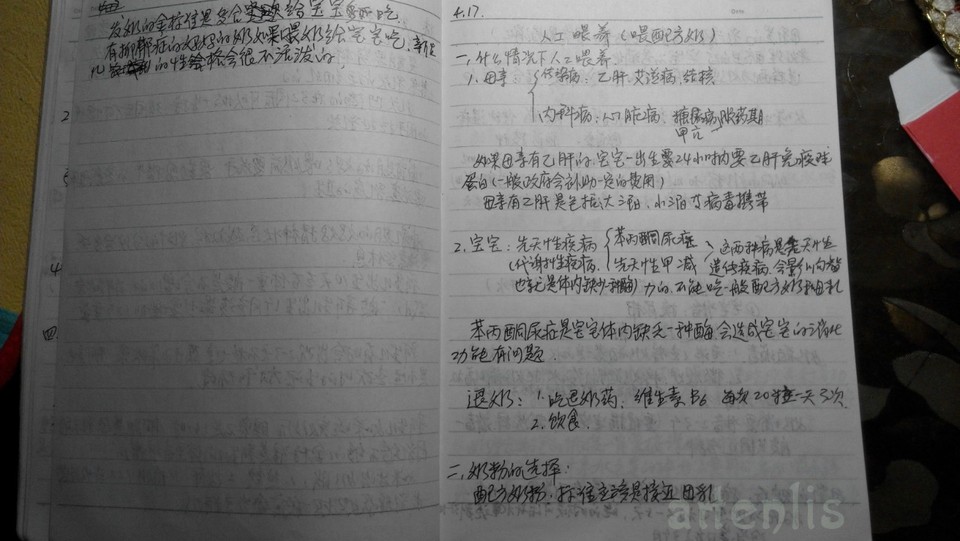 发奶的金标准是多余 给宝宝吃.
有抑郁症的妈妈的奶如果喂奶给宝宝吃,新生
儿的性格会很不活泼的.
2
4
四
4.17.
人工喂养(喂配方奶)
一,什么情况下人工喂养
1.母亲 传染病:乙肝.艾滋病,结核
内科病:心脏病 糖尿病服药期
甲亢
如果母亲有乙肝的,宝宝一出生要24小时内要乙肝免疫球
蛋白(一般政府会补助一定的费用)
母亲有乙肝是包括大三阳,小三阳,病毒携带
2.宝宝:先天性疾病 苯丙酮尿症 这两种病是先天性
(代谢性疾病, 先天性甲减 遗传疾病,会影响智
也就是体内缺少一种酶) 力的,不能吃一般配方奶和母乳
苯丙酮尿症是宝宝体内缺乏一种酶,会造成宝宝的消化
功能有问题.
退奶: 1.吃退奶药, 维生素B6 每次20粒一天3次.
2.饮食.
二,奶粉的选择:
配方奶粉,标准应该是接近母乳
arienlis